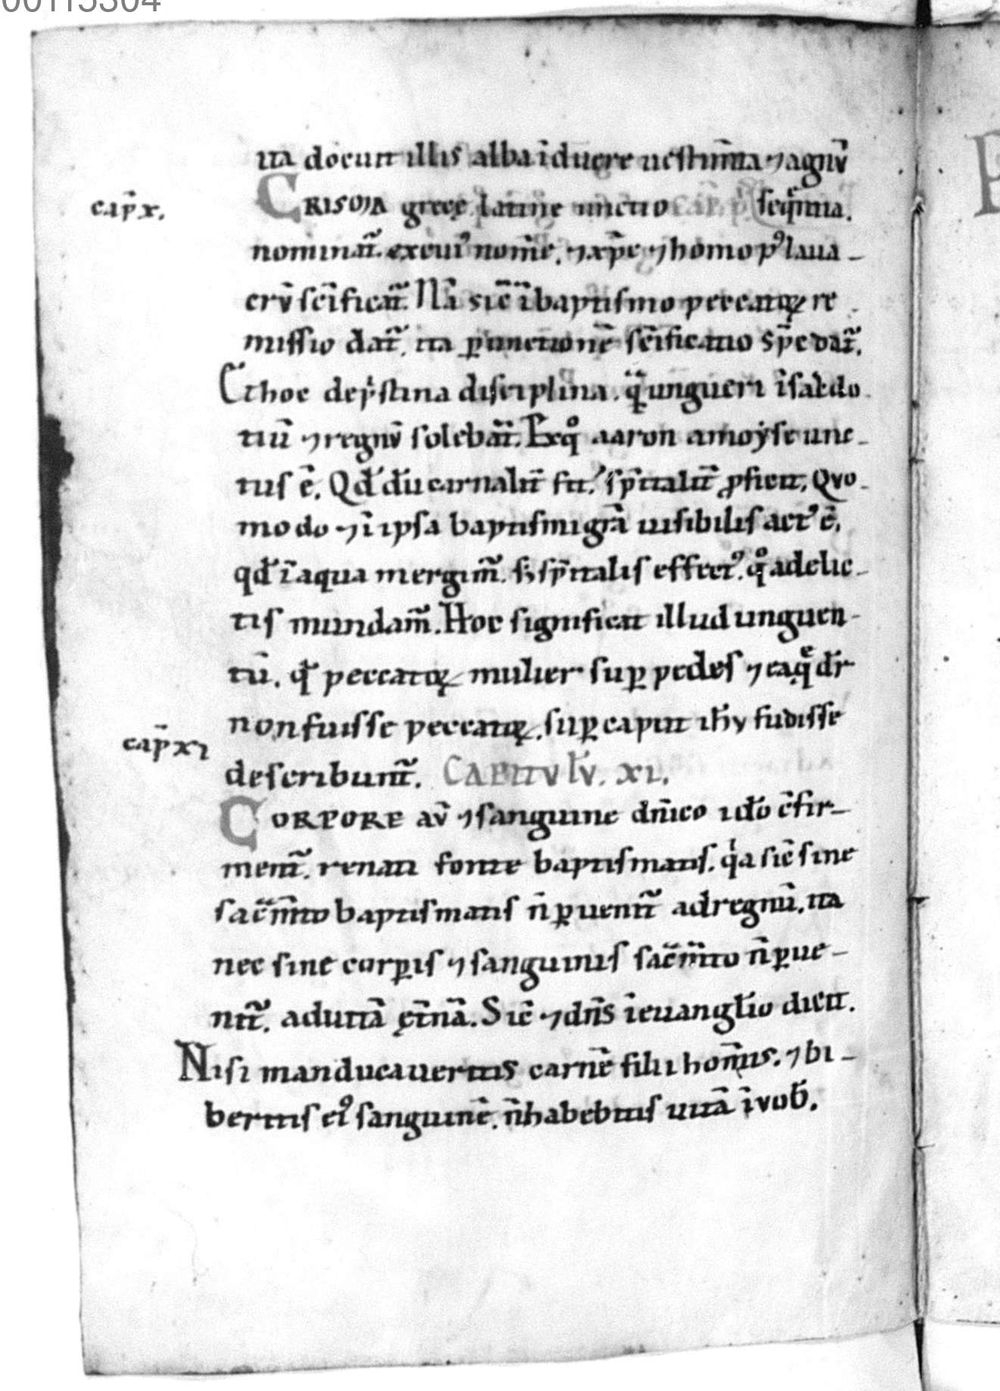 00115304
ita docuit illis alba īduere uestim̄ta ⁊ agnū
cap̄ x.
CRISMA grece latine unctio sequnt̄.
nominat̄. ex cui᷒ nom̄e. ⁊ xp̄c ⁊ homo p᷒ laua-
crū sc̄ificat̄. Nā sic̄ ī baptismo peccatoꝝ re
missio dat̄. ita ꝑ unctionē sc̄ificatio sp̄c dat̄.
Et hoc de pͥstina disciplina. qͣ ungueri ī sac̄do
tiū ⁊ regnū solebāt̄. Ex qͦ aaron a moẏse unc-
tus ē. Qd̄ dū carnalit̄ fit. sp̄italit̄ ꝓficit. Quo-
modo ⁊ ī ipsa baptismi gr̄a uisibilis act᷒ ē.
qd̄ ī aqua mergim̄. s; sp̄italis effect᷒. qͦ a delic-
tis mundam̄. Hoc significat illud unguen-
tū. qd̄ peccatͥx mulier sup pedes ⁊ ea q̄ dr̄
non fuisse peccatͥx. sup caput ihū fudisse
cap̄ xi
describunt̄. CAPITVLV̄. XI.
CORPORE aū ⁊ sanguine dn̄ico ido c̄fir-
ment̄. renati fonte baptismatis. qͥa sic̄ sine
sac̄m̄to baptismatis n̄ ꝑuenit̄ ad regnū. ita
nec sine corꝑis ⁊ sanguinis sac̄m̄to n̄ ꝑue-
nit̄. ad uitā et̄nā. Sic̄ ⁊ dn̄s ī euanglio dicit.
Nisi manducaueritis carnē filii hom̄is. ⁊ bi-
beritis ei᷒ sanguinē. n̄ habebitis uitā ī vob̄.